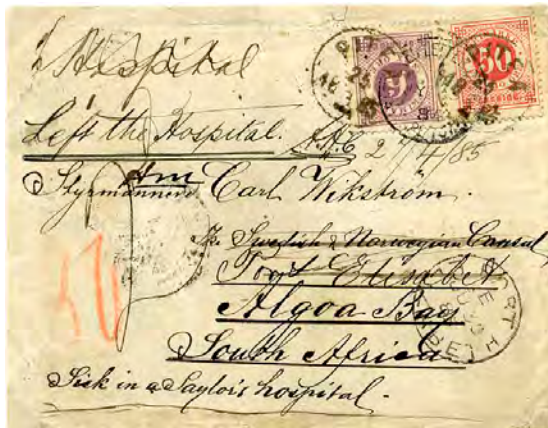 Hospital
Left the Hospital.
2/4/85
Styrmannen Carl Wikström.
Swedish & Norwegian Consul
Port Elisabet
Algoa Bay
South Africa
Sick in a Saylor's hospital.
50
PORT